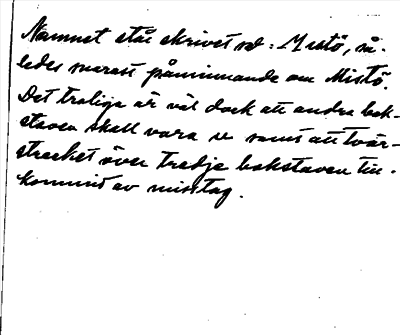 Namnet står skrivet så: Mistö, så-
ledes snarast påminnande om Mistö.
Det troliga är väl dock att andra bok-
staven skall vara u samt att tvär-
strecket över tredje bokstaven till-
kommit av misstag.